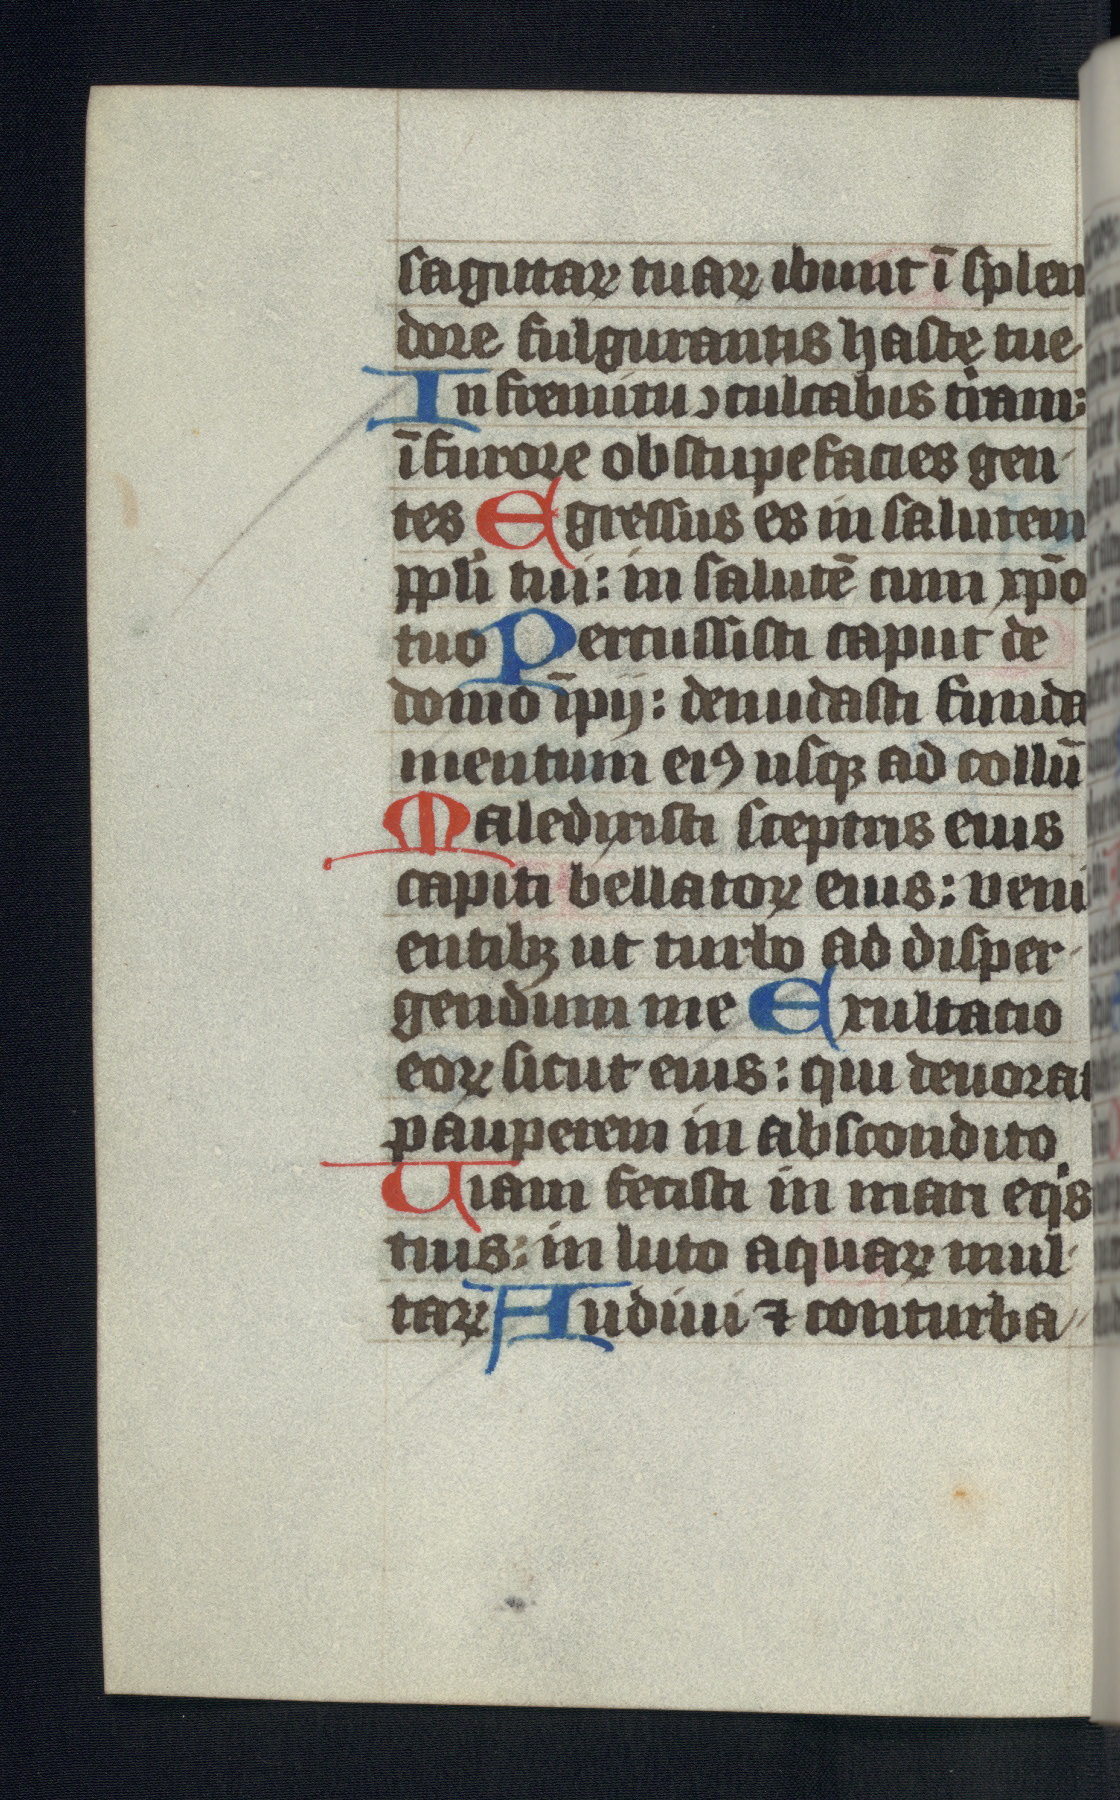 sagittaꝝ tuaꝝ ibunt ī splen
dore fulgurantis hastę tue
In fremitu ↄculcabis tͥram:
ī furore obstupefacies gen-
tes Egressus es in salutem
ppl̓i tui: in salutē cum xp̄o
tuo Percussisti caput de
domo īpij: denudasti funda
mentum eiꝰ usqꝫ ad collū
Maledixisti sceptris eius
capiti bellatoꝝ eius: veni
entibꝫ ut turbo ad disper-
gendum me Exultatio
eoꝝ sicut eius: qui deuorat
pauperem in abscondito.
Uiam fecisti in mari eqͥs
tuis: in luto aquaꝝ mul-
taꝝ Audiui ⁊ conturba//